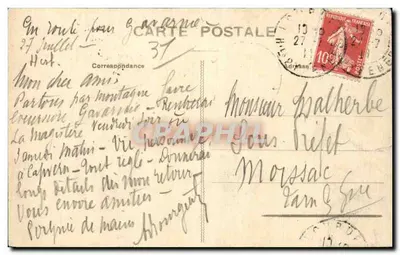 En route pour Gavarnie
27 Juillet -
CARTE POSTALE
31
Correspondance
Mon cher ami
Partons par montagne faire
excursion Gavarnie - Rentrerai
La Magistère Vendredi soir ou
Samedi matin - Vu personne
à Capvern - Tout réglé - Donnerai
longs détails dès mon retour -
Vous envoie amitiés -
Poignée de mains
Monsieur Malherbe
Sous Préfet
Moissac
Tarn & Gne
10